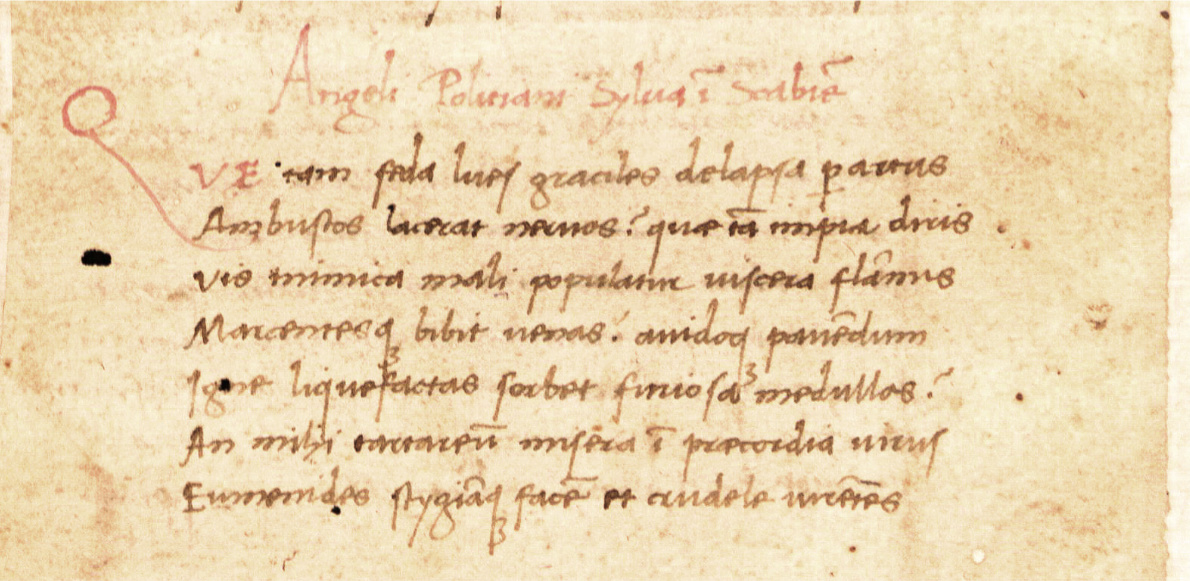 Angeli Politiani Sylva ī Scabiē
QVE tam feda lues graciles delapsa ꝑ artus
Ambustos lacerat neruos? quæ tā impia diris
Vis inimica mali populatur uiscera flāmis
Marcentesqꝫ bibit uenas? auidoqꝫ pauēdum
Igne liquefactas sorbet furiosa medullos?
An mihi tartareū misera ī præcordia uirus
Eumenides stygiāqꝫ facē et crudele uirētēs